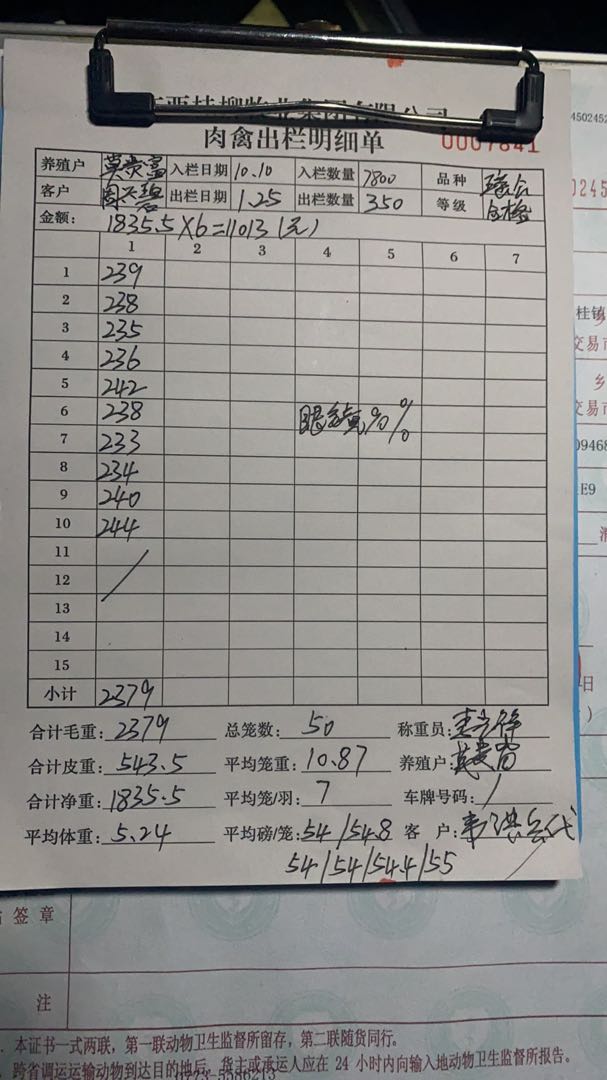 肉禽出栏明细单
0007841
养殖户 莫贵富 入栏日期 10.10 入栏数量 7800 品种
客户 出栏日期 1.25 出栏数量 350 等级 合格
金额: 1835.5×6=11013(元)
1 2 3 4 5 6 7
1 239
2 238
3 235
4 236
5 242
6 238
7 233
8 234
9 240
10 244
11
12
13
14
15
小计 2379
合计毛重: 2379 总笼数: 50 称重员:
合计皮重: 543.5 平均笼重: 10.87 养殖户: 莫贵富
合计净重: 1835.5 平均笼/羽: 7 车牌号码: /
平均体重: 5.24 平均磅/笼: 54/54.8 客户:
54/54/54.4/55
签章
注
本证书一式两联,第一联动物卫生监督所留存,第二联随货同行。
跨省调运动物到达目的地后,货主或承运人应在 24 小时内向输入地动物卫生监督所报告。